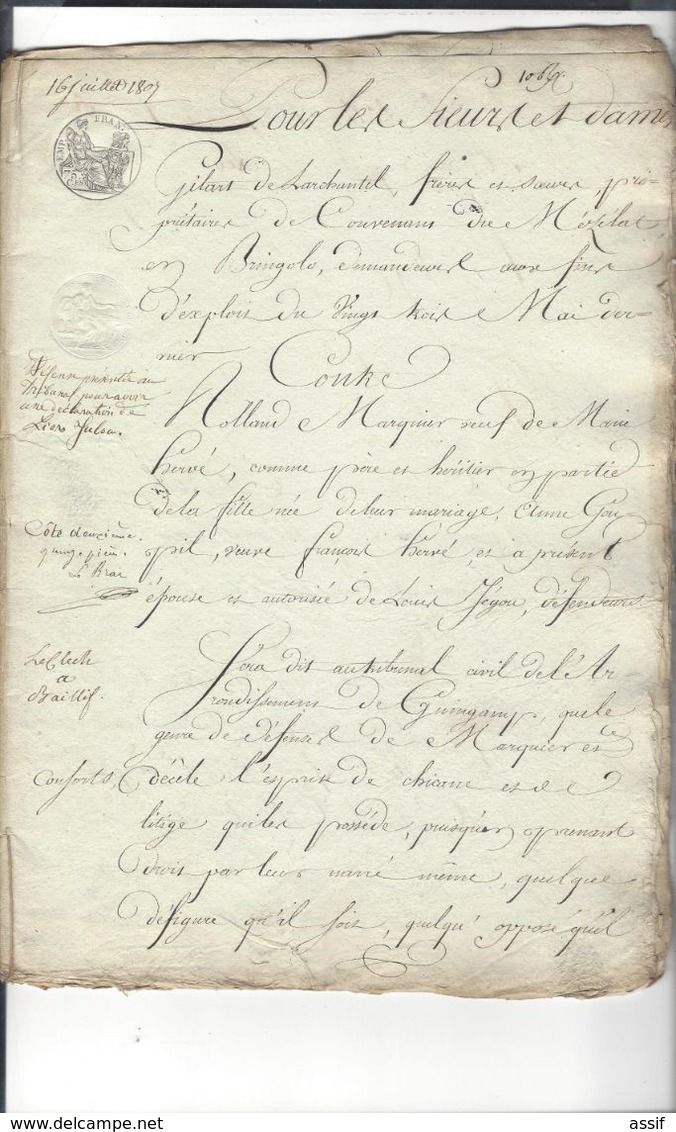 16 juillet 1807
106
Pour les Sieurs et dames
EMP. FRAN.
Gilart de Larchantel, frères et sœurs, pro-
priétaires de Couvenans du Mézilat
en Bringolo, demandeurs aux fins
d'exploit du vingt trois Mai der-
nier
Contre
défense présentée au
tribunal pour avoir
une déclaration de
Rolland Marquier veuf de Marie
hervé, comme père et héritier en partie
de la fille née de leur mariage, et anne Gou-
pil, veuve françois hervé, et à présent
épouse et autorisée de Louis Jégou, défendeurs
Côte deuxième
quinze pièces
Le Brac
Sera dit au tribunal civil de l'Ar-
rondissement de Guingamp, que le
genre de défenses de Marquier et
Le Clech
a
Baillif
Consorts, décèle l'esprit de chicane et de
litige qui les possède, puisqu'en prenant
droit par leur narré même, quelque
défiguré qu'il soit, quelqu'opposé qu'il
assif